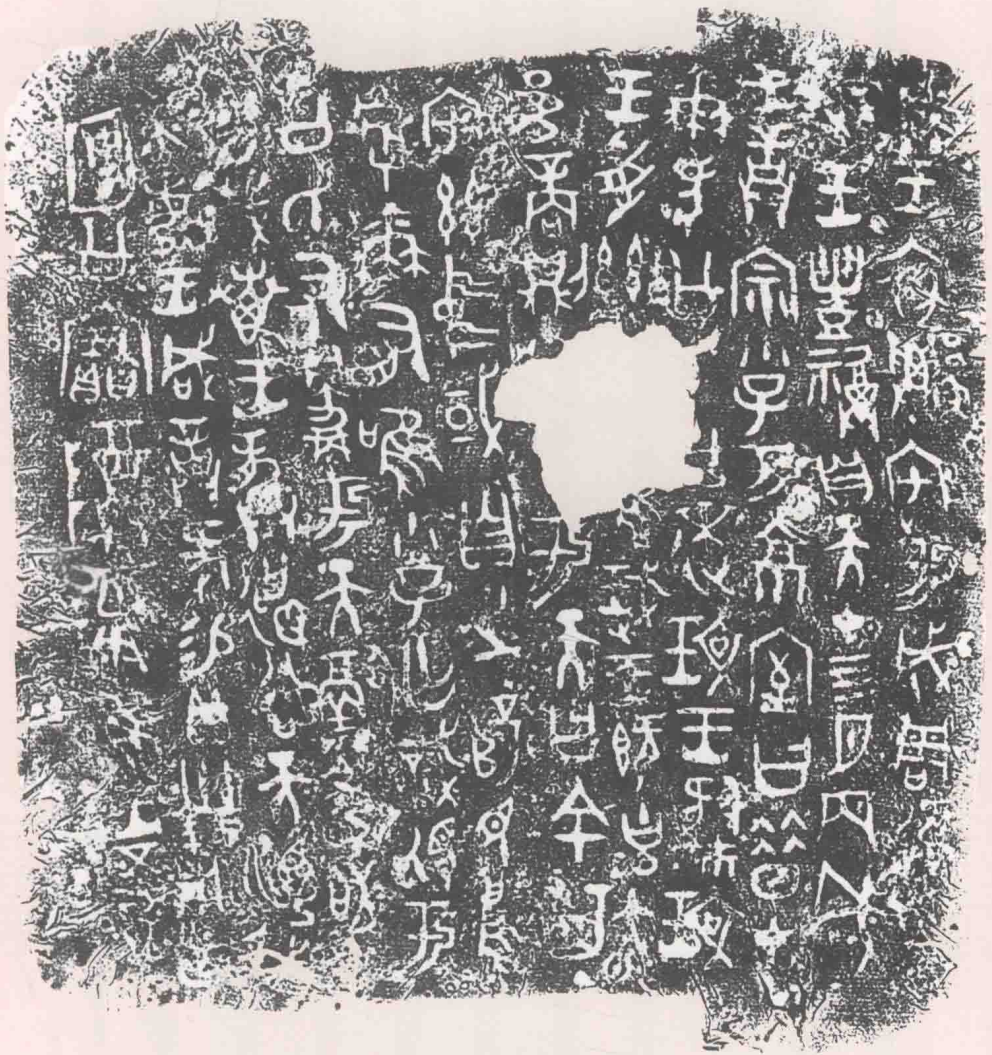 唯王初遷宅于成周復禀
珷王豊福自天才四月丙戌
王誥宗小子于京室曰昔才
爾考公氏克逨玟王肆玟
王受茲唯珷王既克大
邑商則廷告于天曰余其
宅茲中或自之乂民烏
虖爾有唯小子亡識視于
公氏有爵于天徹令敬
享哉唯王恭德谷天訓我
不敏王咸誥何易貝卅朋用乍
公寶尊彝唯王五祀